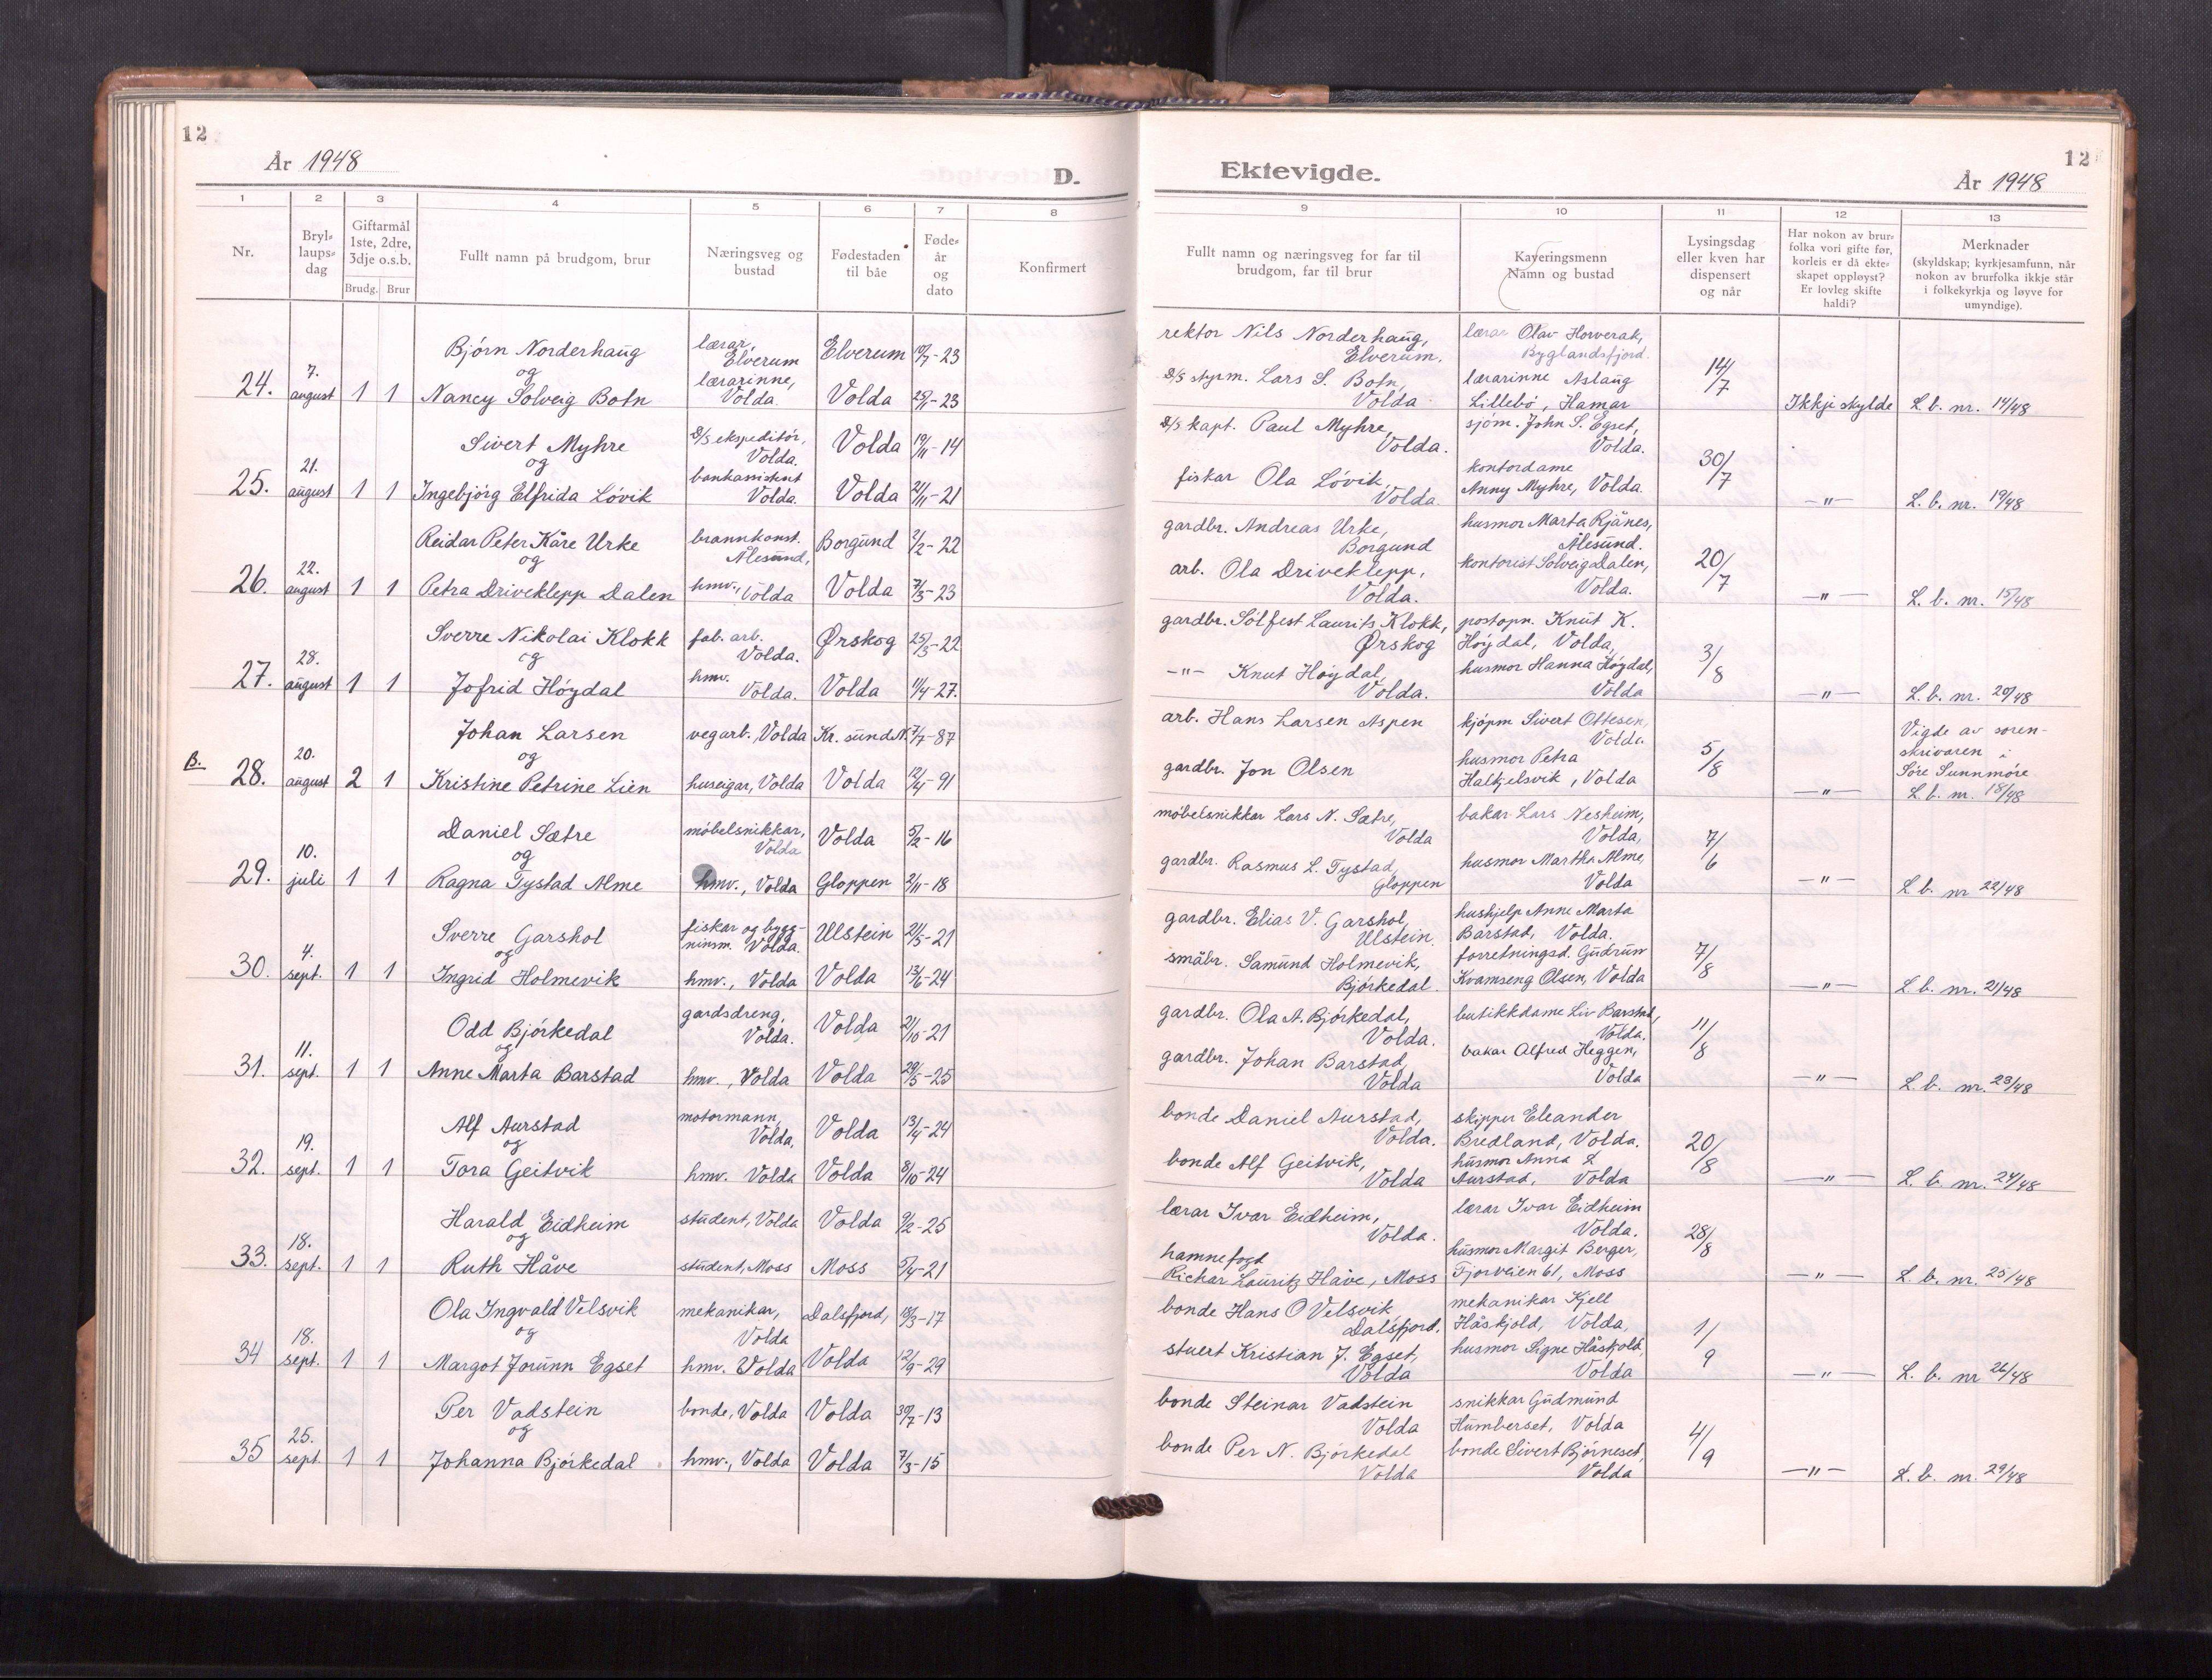 12
År 1948
D.
Ektevigde.
År 1948
12
1 2 3 4 5 6 7 8 9 10 11 12 13
Nr.
Bryl-
laups-
dag
Giftarmål
1ste, 2dre,
3dje o.s.b.
Brudg. Brur
Fullt namn på brudgom, brur
Næringsveg og
bustad
Fødestaden
til båe
Føde-
år
og
dato
Konfirmert
Fullt namn og næringsveg for far til
brudgom, far til brur
Kaveringsmenn
Namn og bustad
Lysingsdag
eller kven har
dispensert
og når
Har nokon av brur-
folka vori gifte før,
korleis er då ekte-
skapet oppløyst?
Er lovleg skifte
haldi?
Merknader
(skyldskap; kyrkjesamfunn, når
nokon av brurfolka ikkje står
i folkekyrkja og løyve for
umyndige).
24. 7. august 1 1
Bjørn Norderhaug
og
Nancy Solveig Botn
lærar,
Elverum
lærarinne,
Volda.
Elverum
Volda
-23
-23
rektor Nils Norderhaug,
Elverum.
D/S styrm. Lars S. Botn,
Volda.
lærar Olav Horverak,
Byglandsfjord.
lærarinne Aslaug
Lillebø, Hamar
14/7
Ikkje skylde
L. b. nr. 14/48
25. 21. august 1 1
Sivert Myhre
og
Ingebjørg Elfrida Løvik
D/S ekspeditør,
Volda.
bankassistent
Volda.
Volda 19/11-14
Volda 21/11-21
D/S kapt. Paul Myhre,
Volda.
fiskar Ola Løvik,
Volda.
sjøm. John S. Egset,
Volda.
kontordame
Anny Myhre, Volda.
30/7
—"—
L. b. nr. 19/48
26. 22. august 1 1
Reidar Peter Kåre Urke
og
Petra Driveklepp Dalen
brannkonst.
Ålesund,
hmv., Volda
Borgund -22
Volda 7/3-23
gardbr. Andreas Urke,
Borgund
arb. Ola Driveklepp,
Volda.
husmor Marta Rjånes,
Ålesund.
kontorist Solveig Dalen,
Volda.
20/7
—"—
L. b. nr. 15/48
27. 28. august 1 1
Sverre Nikolai Klokk
og
Jofrid Høydal
fab. arb.
Volda.
hmv.
Volda.
Ørskog 25/3-22
Volda 11/4-27.
gardbr. Sølfest Laurits Klokk,
Ørskog
—"— Knut Høydal,
Volda.
postopn. Knut K.
Høydal, Volda,
husmor Hanna Høydal,
Volda
3/8
—"—
L. b. nr. 20/48
B. 28. 20. august 2 1
Johan Larsen
og
Kristine Petrine Lien
vegarb., Volda
huseigar, Volda
Kr. sund N. 7/7-87
Volda 12/4-91
arb. Hans Larsen Aspen
gardbr. Jon Olsen
kjøpm Sivert Ottesen,
Volda.
husmor Petra
Halkjelsvik, Volda
5/8
—"—
Vigde av soren-
skrivaren i
Søre Sunnmøre.
L. b. nr. 18/48
29. 10. juli 1 1
Daniel Sætre
og
Ragna Tystad Alme
møbelsnikkar,
Volda
hmv., Volda
Volda 5/2-16
Gloppen 2/11-18
møbelsnikkar Lars N. Sætre,
Volda
gardbr. Rasmus L. Tystad,
Gloppen
bakar Lars Nesheim,
Volda,
husmor Martha Alme,
Volda
7/6
—"—
L. b. nr 22/48
30. 4. sept. 1 1
Sverre Garshol
og
Ingrid Holmevik
fiskar og bygg-
ninsm. Volda.
hmv., Volda
Ulstein 21/5-21
Volda 13/6-24
gardbr. Elias V. Garshol,
Ulstein.
småbr. Samund Holmevik,
Bjørkedal.
hushjelp Anne Marta
Barstad, Volda.
forretningsd. Gudrun
Kvamseng Olsen, Volda
7/8
—"—
L. b. nr. 21/48
31. 11. sept. 1 1
Odd Bjørkedal
og
Anne Marta Barstad
gardsdreng,
Volda.
hmv., Volda
Volda 21/10-21
Volda 29/5-25
gardbr. Ola A. Bjørkedal,
Volda.
gardbr. Johan Barstad,
Volda
butikkdame Liv Barstad,
Volda.
bakar Alfred Heggen,
Volda
11/8
—"—
L. b. nr. 23/48
32. 19. sept. 1 1
Alf Aurstad
og
Tora Geitvik
motormann,
Volda,
hmv. Volda
Volda 13/4-24
Volda 8/10-24
bonde Daniel Aurstad,
Volda.
bonde Alf Geitvik,
Volda
skipper Eleander
Bredland, Volda.
husmor Anna
Aurstad, Volda
20/8
—"—
L. b. nr. 24/48
33. 18. sept. 1 1
Harald Eidheim
og
Ruth Håve
student, Volda
student, Moss
Volda 9/2-25
Moss 5/4-21
lærar Ivar Eidheim,
Volda.
hamnefogd
Richar Lauritz Håve, Moss
lærar Ivar Eidheim
Volda.
husmor Margit Berger,
Fjorveien 61, Moss
28/8
—"—
L. b. nr. 25/48
34 18. sept. 1 1
Ola Ingvald Velsvik
og
Margot Jorunn Egset
mekanikar,
Volda
hmv. Volda
Dalsfjord, 18/3-17
Volda 12/9-29
bonde Hans O Velsvik
Dalsfjord.
stuert Kristian J. Egset,
Volda
mekanikar Kjell
Håskjold, Volda,
husmor Signe Håskjold,
Volda
1/9
—"—
L. b. nr 26/48
35 25. sept. 1 1
Per Vadstein
og
Johanna Bjørkedal
bonde, Volda
hmv., Volda
Volda 30/7-13
Volda 7/3-15
bonde Steinar Vadstein
Volda
bonde Per N. Bjørkedal
Volda
snikkar Gudmund
Humberset, Volda
bonde Sivert Bjørneset,
Volda
4/9
—"—
L. b. nr. 29/48